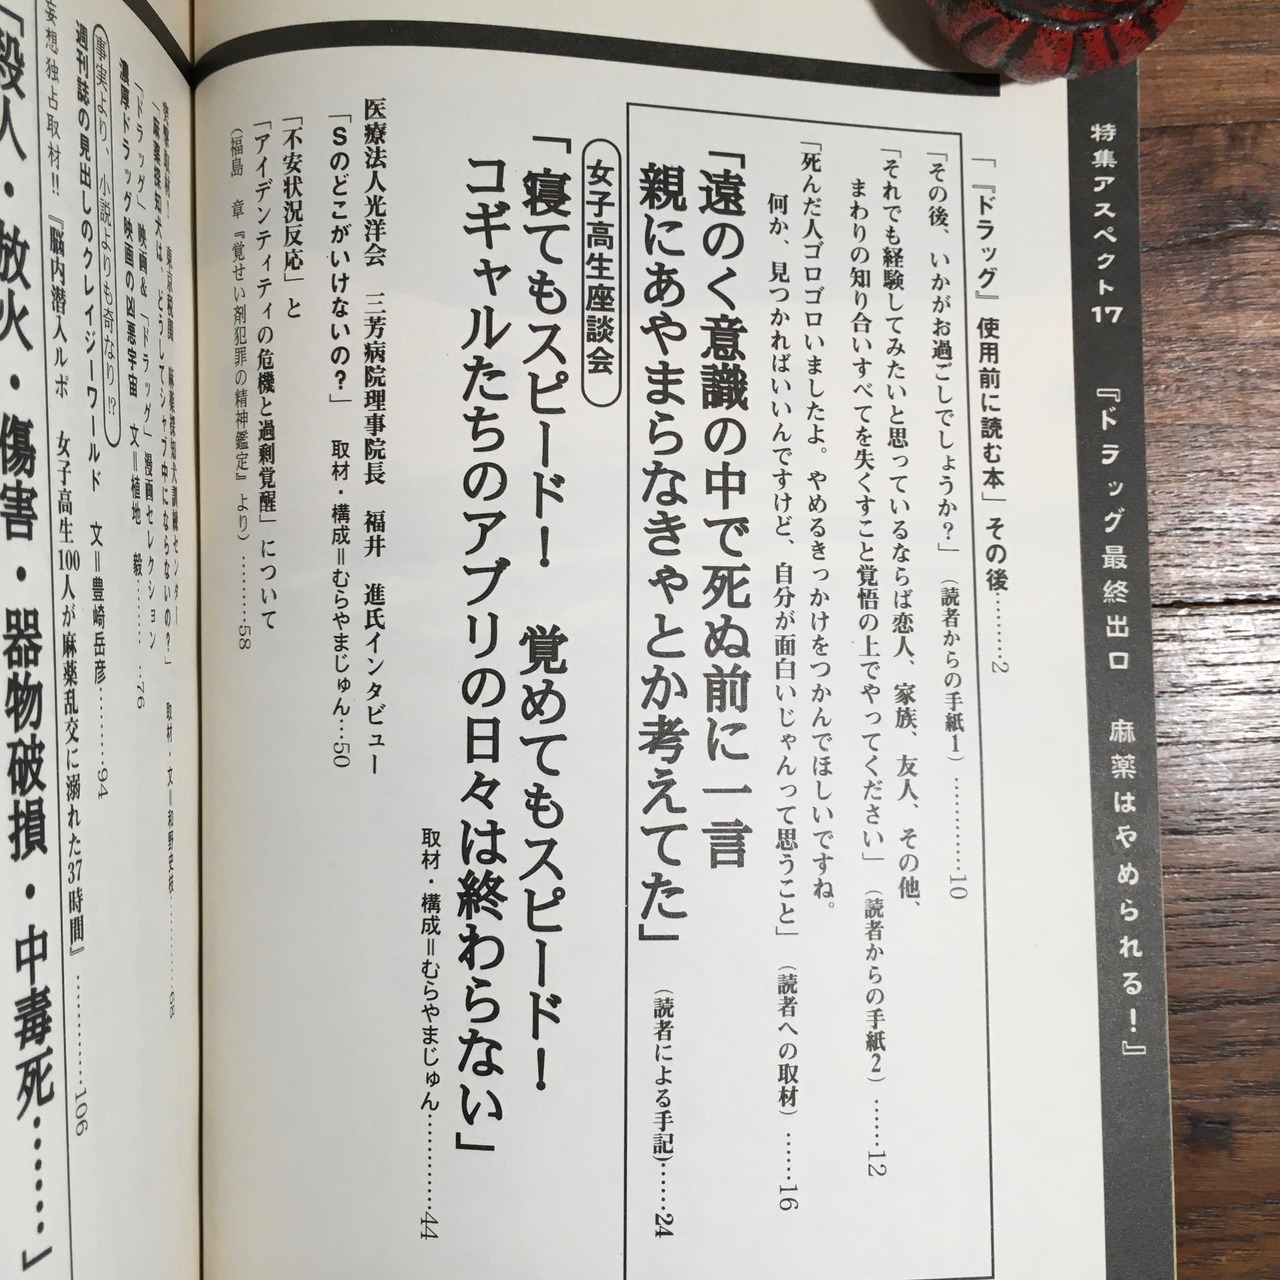 特集アスペクト17 『ドラッグ最終出口 麻薬はやめられる!』
「『ドラッグ』使用前に読む本」その後………2
「その後、いかがお過ごしでしょうか?」(読者からの手紙1)…………10
「それでも経験してみたいと思っているならば恋人、家族、友人、その他、
まわりの知り合いすべてを失くすこと覚悟の上でやってください」(読者からの手紙2)……12
「死んだ人ゴロゴロいましたよ。やめるきっかけをつかんでほしいですね。
何か、見つかればいいんですけど、自分が面白いじゃんって思うこと」(読者への取材)……16
「遠のく意識の中で死ぬ前に一言
親にあやまらなきゃとか考えてた」(読者による手記)……24
女子高生座談会
「寝てもスピード! 覚めてもスピード!
コギャルたちのアブリの日々は終わらない」
取材・構成=むらやまじゅん…………44
医療法人光洋会 三芳病院理事院長 福井 進氏インタビュー
「Sのどこがいけないの?」 取材・構成=むらやまじゅん…50
「不安状況反応」と
「アイデンティティの危機と過剰覚醒」について
(福島 章『覚せい剤犯罪の精神鑑定』より)………58
麻薬探知犬は、どうしてシャブ中にならないの?」 取材・文=和野史枝…………68
「ドラッグ」映画&「ドラッグ」漫画セレクション
濃厚ドラッグ映画の凶悪宇宙 文=植地 毅………76
事実より、小説よりも奇なり!?
週刊誌の見出しのクレイジーワールド 文=豊崎岳彦………94
妄想独占取材!!『脳内潜入ルポ 女子高生100人が麻薬乱交に溺れた37時間』…………106
「殺人・放火・傷害・器物破損・中毒死……」